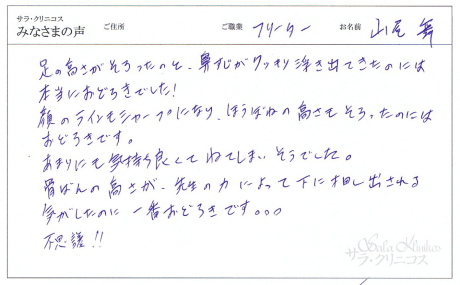 サラ・クリニコス
みなさまの声 ご住所 ご職業 フリーター お名前 山尾 舞
足の高さがそろったのと、鼻すじがクッキリ浮き出てきたのには
本当におどろきでした!
顔のラインもシャープになり、ほうぼねの高さもそろったのには
おどろきです。
あまりにも気持ち良くてねてしまいそうでした。
骨ばんの高さが、先生の力によって下に押し出される
気がしたのに一番おどろきです。。。
不思議!!
Sala Klinikos
サラ・クリニコス